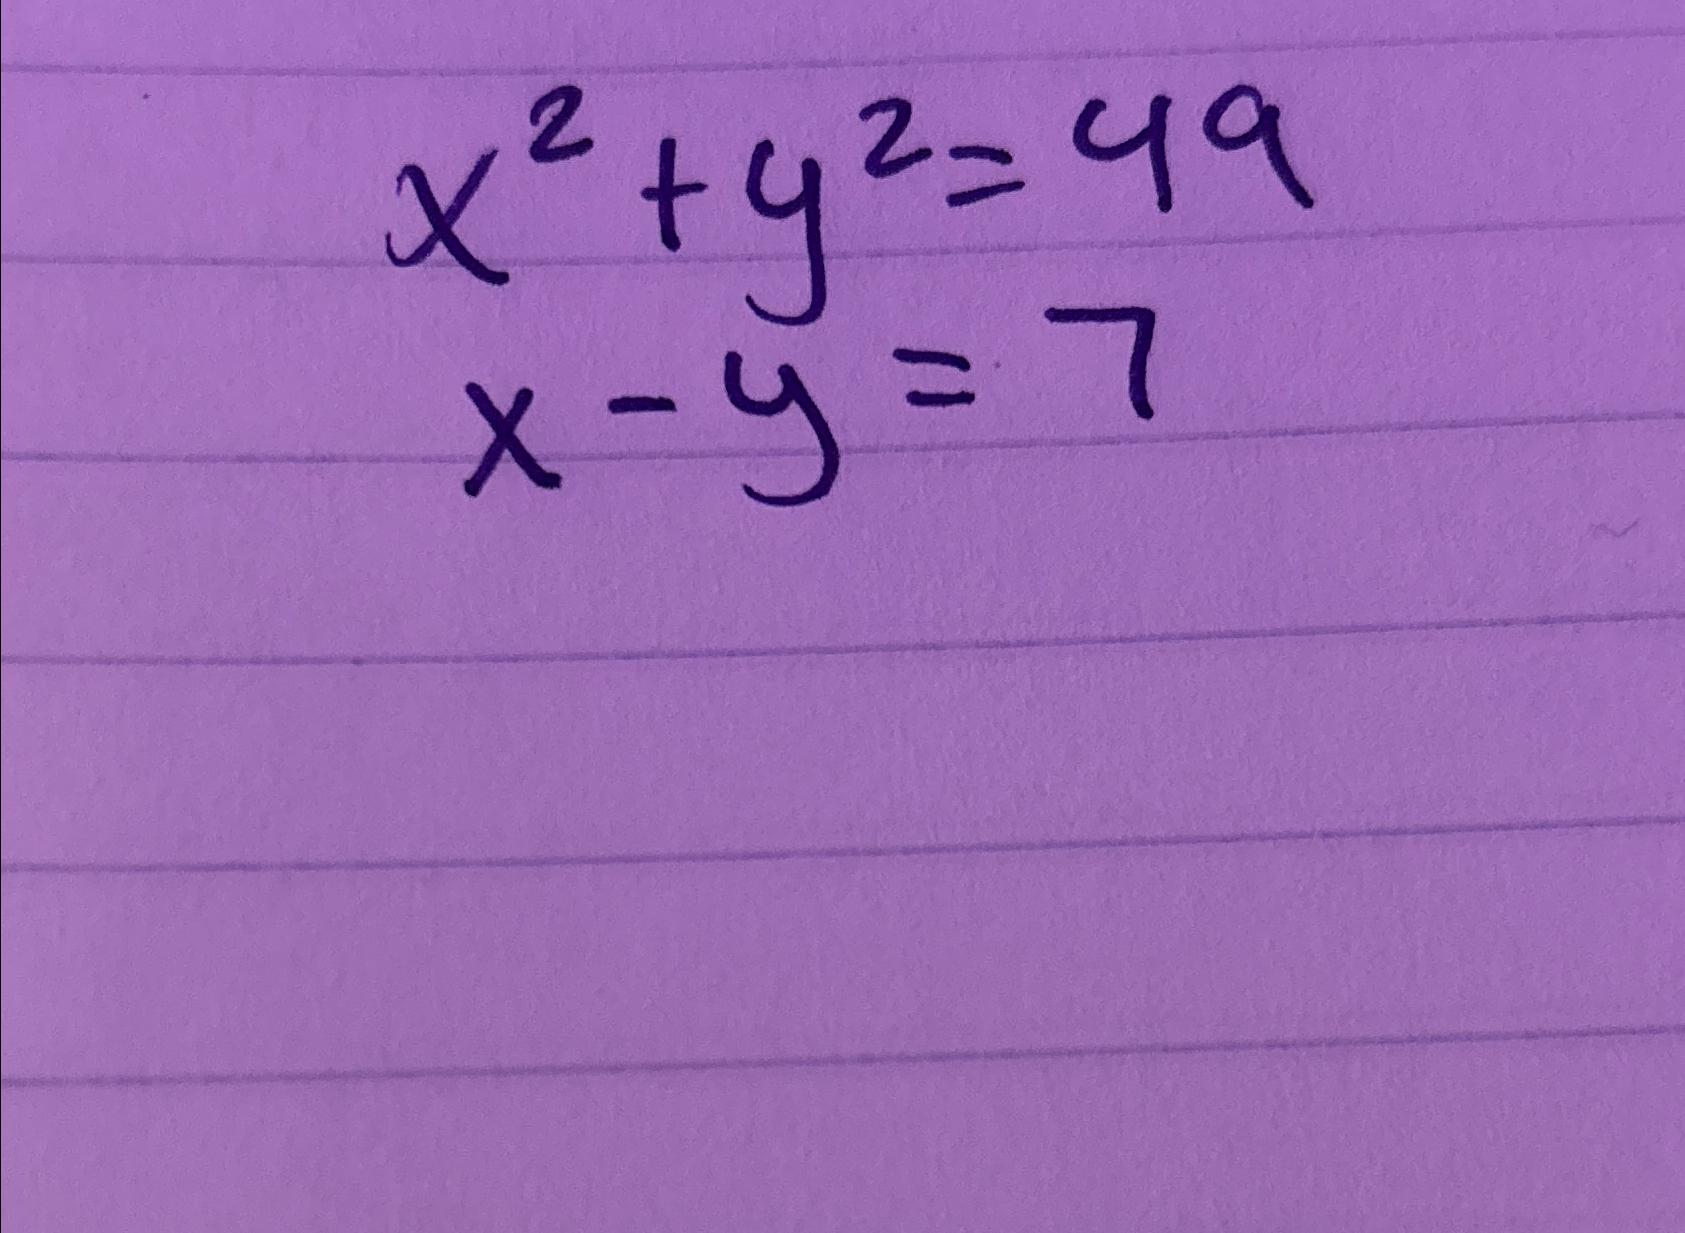 x² + y² = 49
x - y = 7